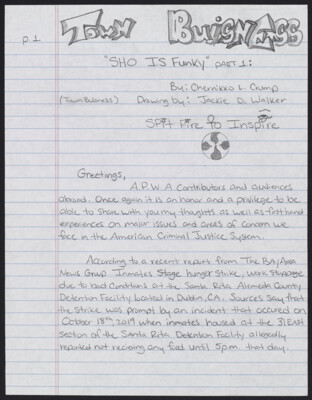 p.1
Town Buisnass
"SHO IS FUNKY" PART 1:
By: Chernikko L. Crump
(Town Buisness) Drawing by: Jackie D. Walker
Spit Fire to Inspire
Greetings,
A.P.W.A Contributors and audiences
abroad. Once again it is an honor and a privilege to be
able to share with you my thoughts as well as firsthand
experiences on major issues and areas of concern we
face in the American Criminal Justice System.
According to a recent report from The Bay Area
News Group Inmates Stage hunger strike, work stoppage
due to bad conditions at the Santa Rita Alameda County
Detention Facility located in Dublin, CA. Sources say that
the strike was prompt by an incident that occured on
October 18th, 2019 when inmates housed at the 31 EAST
section of the Santa Rita Detention Facility allegedly
reported not recieving any food until 5pm. that day.